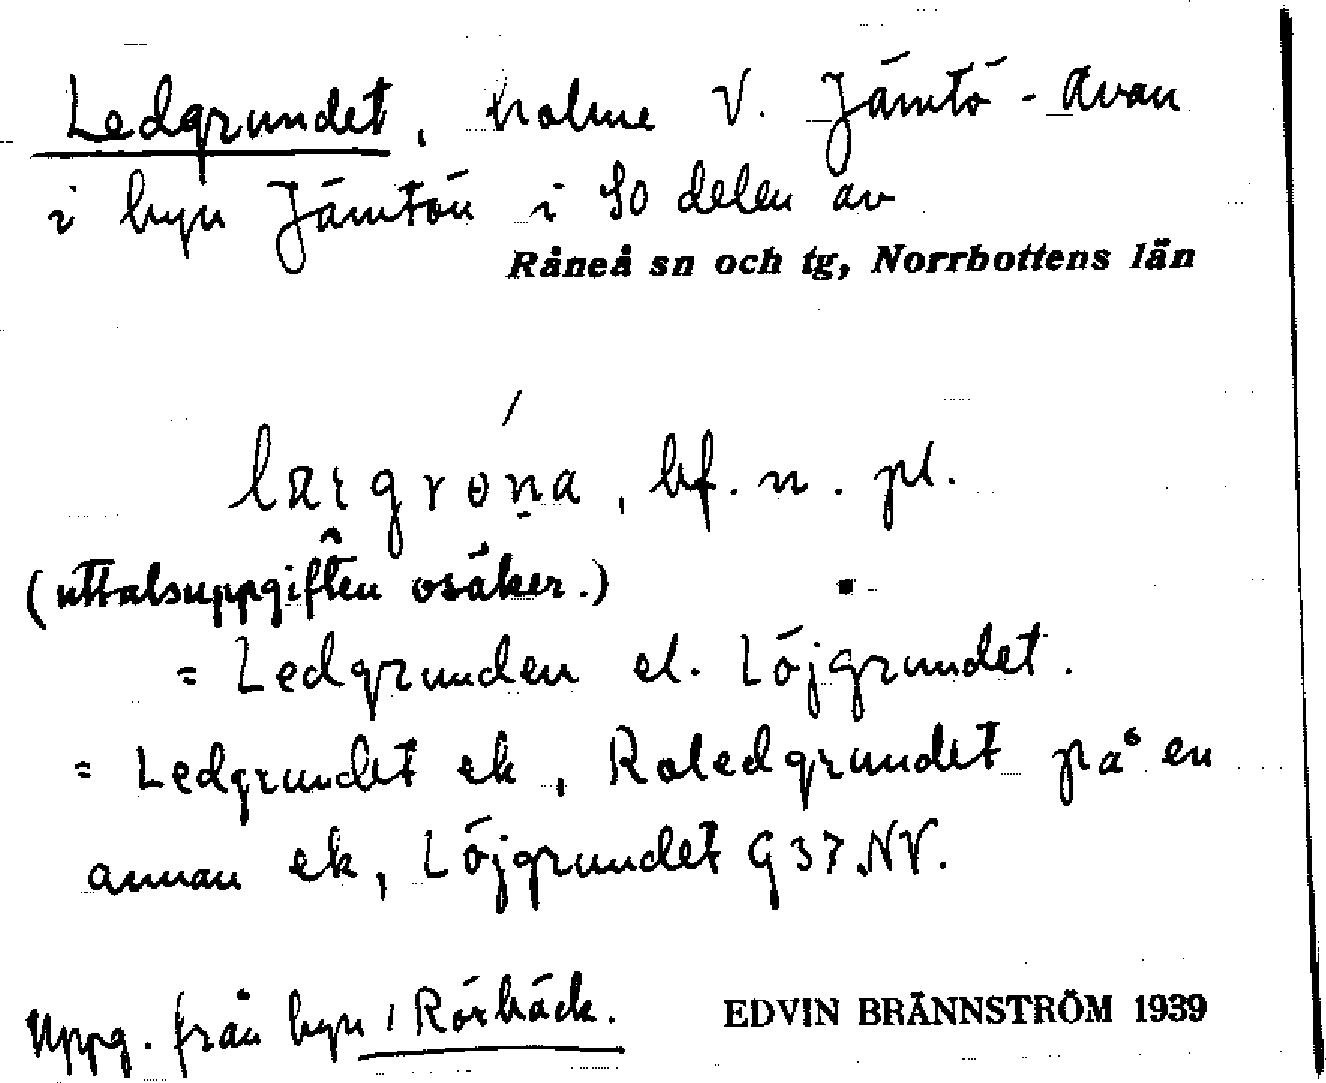 Ledgrundet, holme V. Jämtö-Avan
i byn Jämtön i SO delen av
Råneå sn och tg, Norrbottens län
bf. n. pl.
(uttalsuppgiften osäker.)
= Ledgrunden el. Löjgrundet.
= Ledgrundet ek, Raledgrundet på en
annan ek, Löjgrundet G37.NV.
Uppg. från byn Rörbäck.
EDVIN BRÄNNSTRÖM 1939